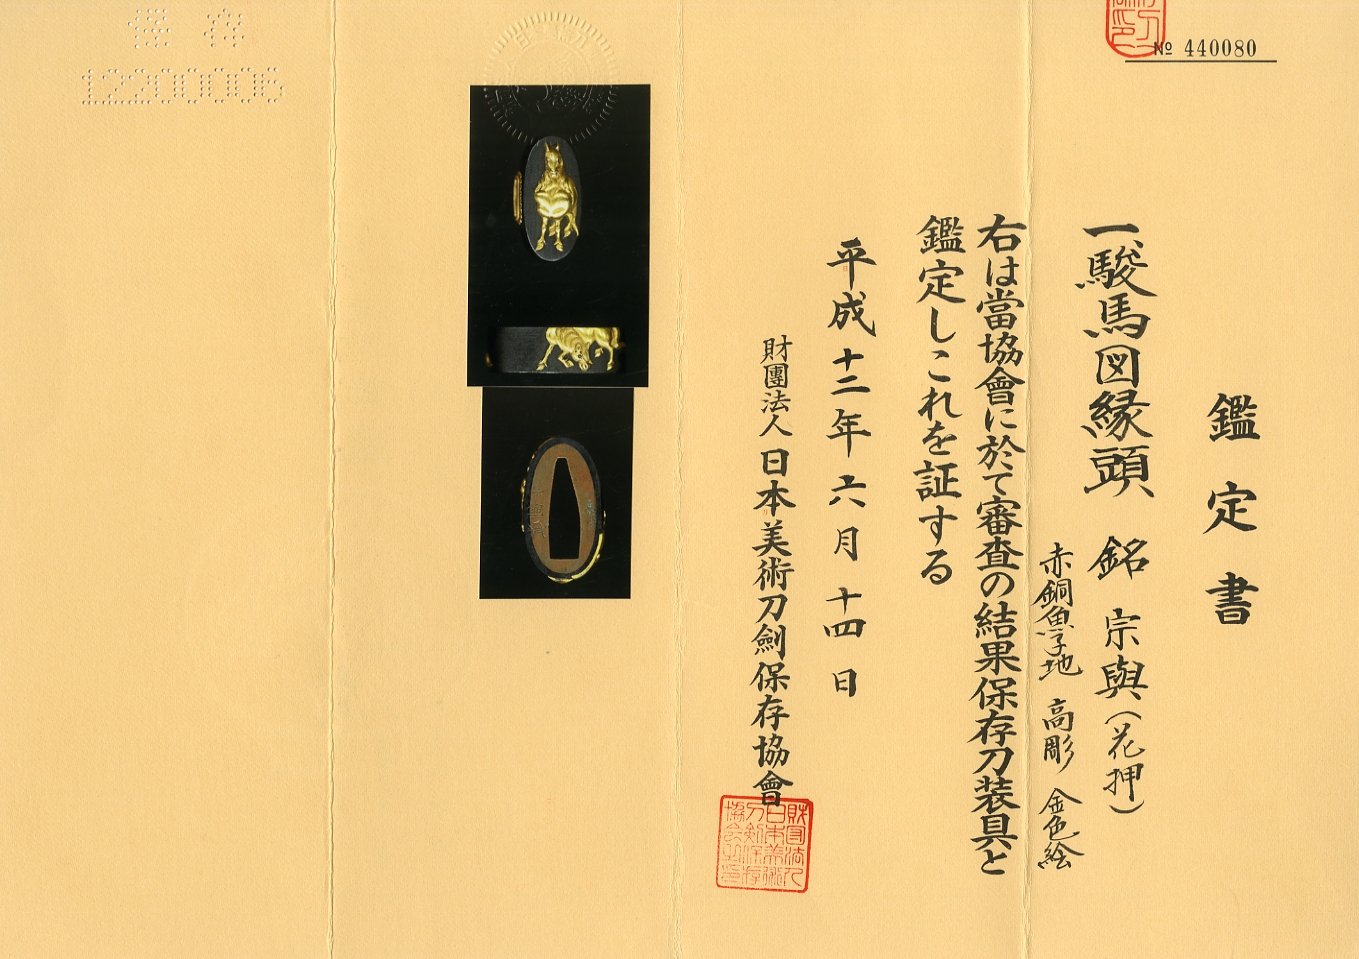 № 440080
鑑定書
一駿馬図縁頭 銘 宗與(花押)
赤銅魚子地 高彫 金色絵
右は當協會に於て審査の結果保存刀装具と
鑑定しこれを証する
平成十二年六月十四日
財團法人日本美術刀劍保存協會
保存
12200006